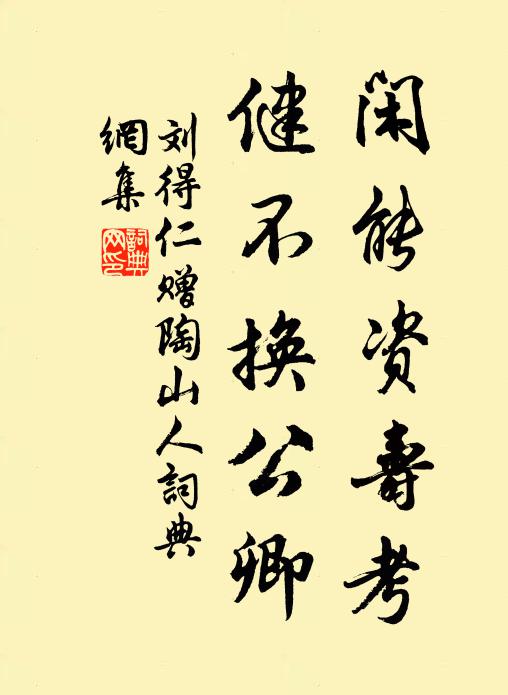 闲能资寿考
健不换公卿
刘得仁赠陶山人詞典
網集
詞典网印